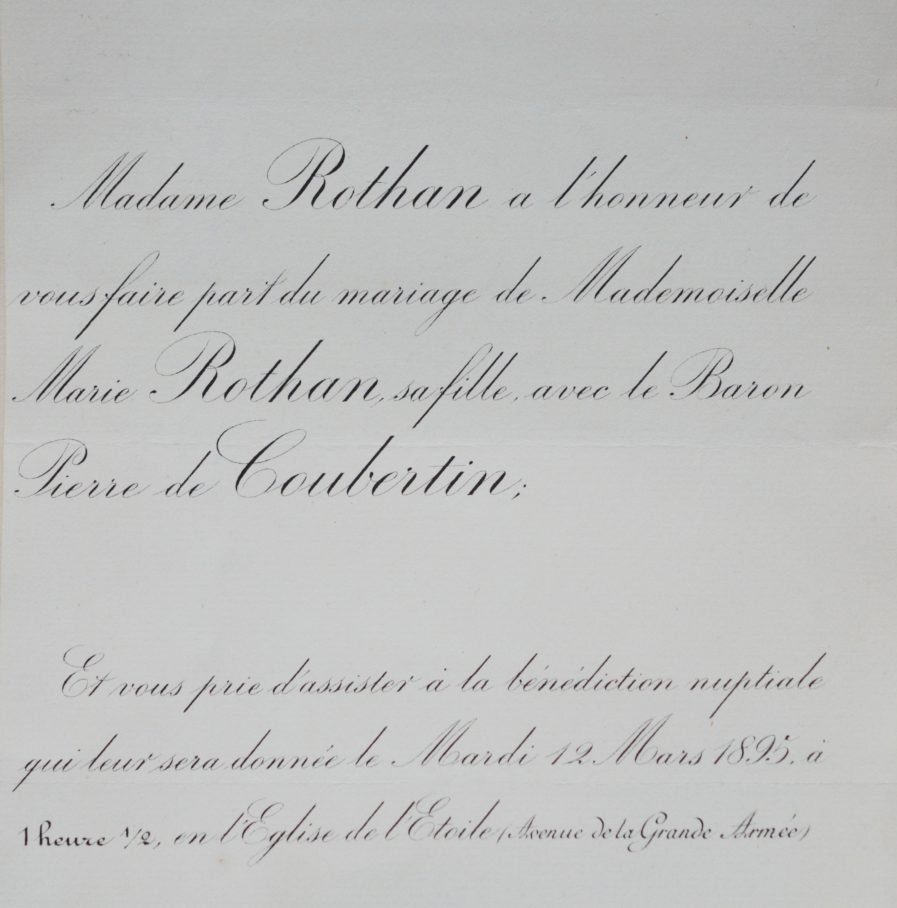 Madame Rothan a l'honneur de
vous faire part du mariage de Mademoiselle
Marie Rothan, sa fille, avec le Baron
Pierre de Coubertin;
Et vous prie d'assister à la bénédiction nuptiale
qui leur sera donnée le Mardi 12 Mars 1895, à
1 heure 1/2, en l'Eglise de l'Etoile (Avenue de la Grande Armée)